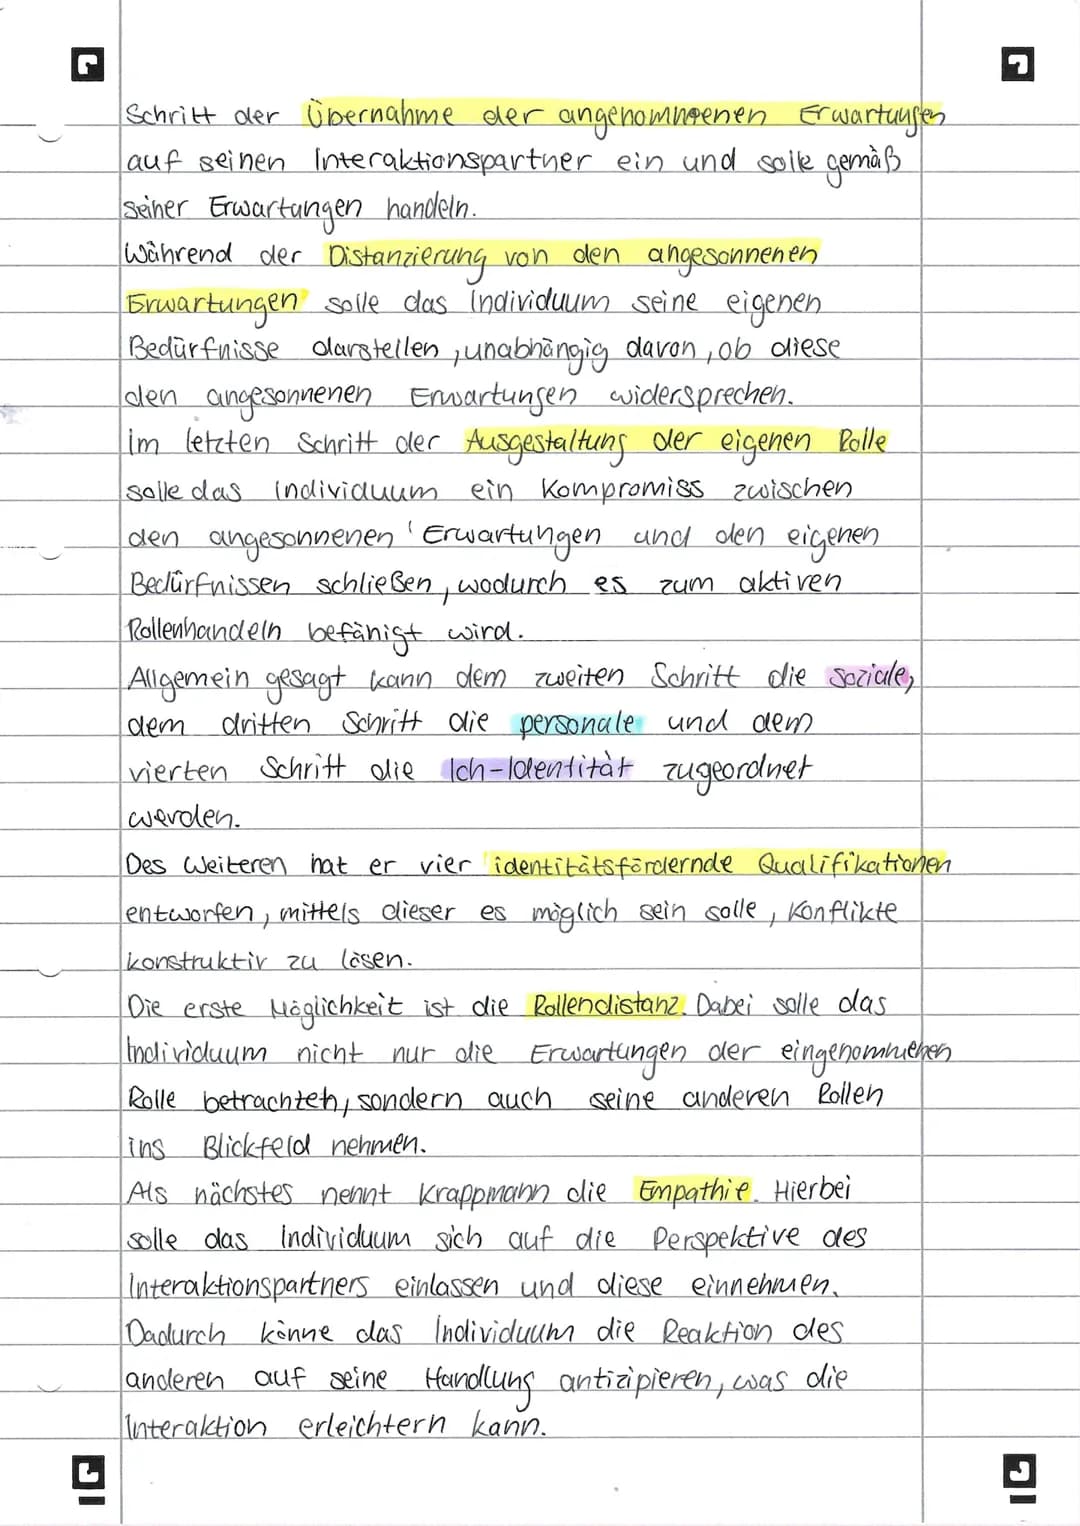 Schritt der Übernahme der angenommenen Erwartungen
auf seinen Interaktionspartner ein und solle gemäß
seiner Erwartungen handeln.
Während der Distanzierung von den angesonnenen
Erwartungen solle das Individuum seine eigenen
Bedürfnisse darstellen, unabhängig davon, ob diese
den angesonnenen Erwartungen widersprechen.
Im letzten Schritt der Ausgestaltung der eigenen Rolle
solle das Individuum ein Kompromiss zwischen
den angesonnenen Erwartungen und den eigenen
Bedürfnissen schließen, wodurch es zum aktiven
Rollenhandeln befähigt wird.
Allgemein gesagt kann dem zweiten Schritt die soziale,
dem dritten Schritt die personale und dem
vierten Schritt die Ich-Identität zugeordnet
werden.
Des Weiteren hat er vier identitätsfördernde Qualifikationen
entworfen, mittels dieser es möglich sein solle, Konflikte
konstruktiv zu lösen.
Die erste Möglichkeit ist die Rollendistanz. Dabei solle das
Individuum nicht nur die Erwartungen der eingenommenen
Rolle betrachten, sondern auch seine anderen Rollen
ins Blickfeld nehmen.
Als nächstes nennt Krappmann die Empathie. Hierbei
solle das Individuum sich auf die Perspektive des
Interaktionspartners einlassen und diese einnehmen.
Dadurch könne das Individuum die Reaktion des
anderen auf seine Handlung antizipieren, was die
Interaktion erleichtern kann.